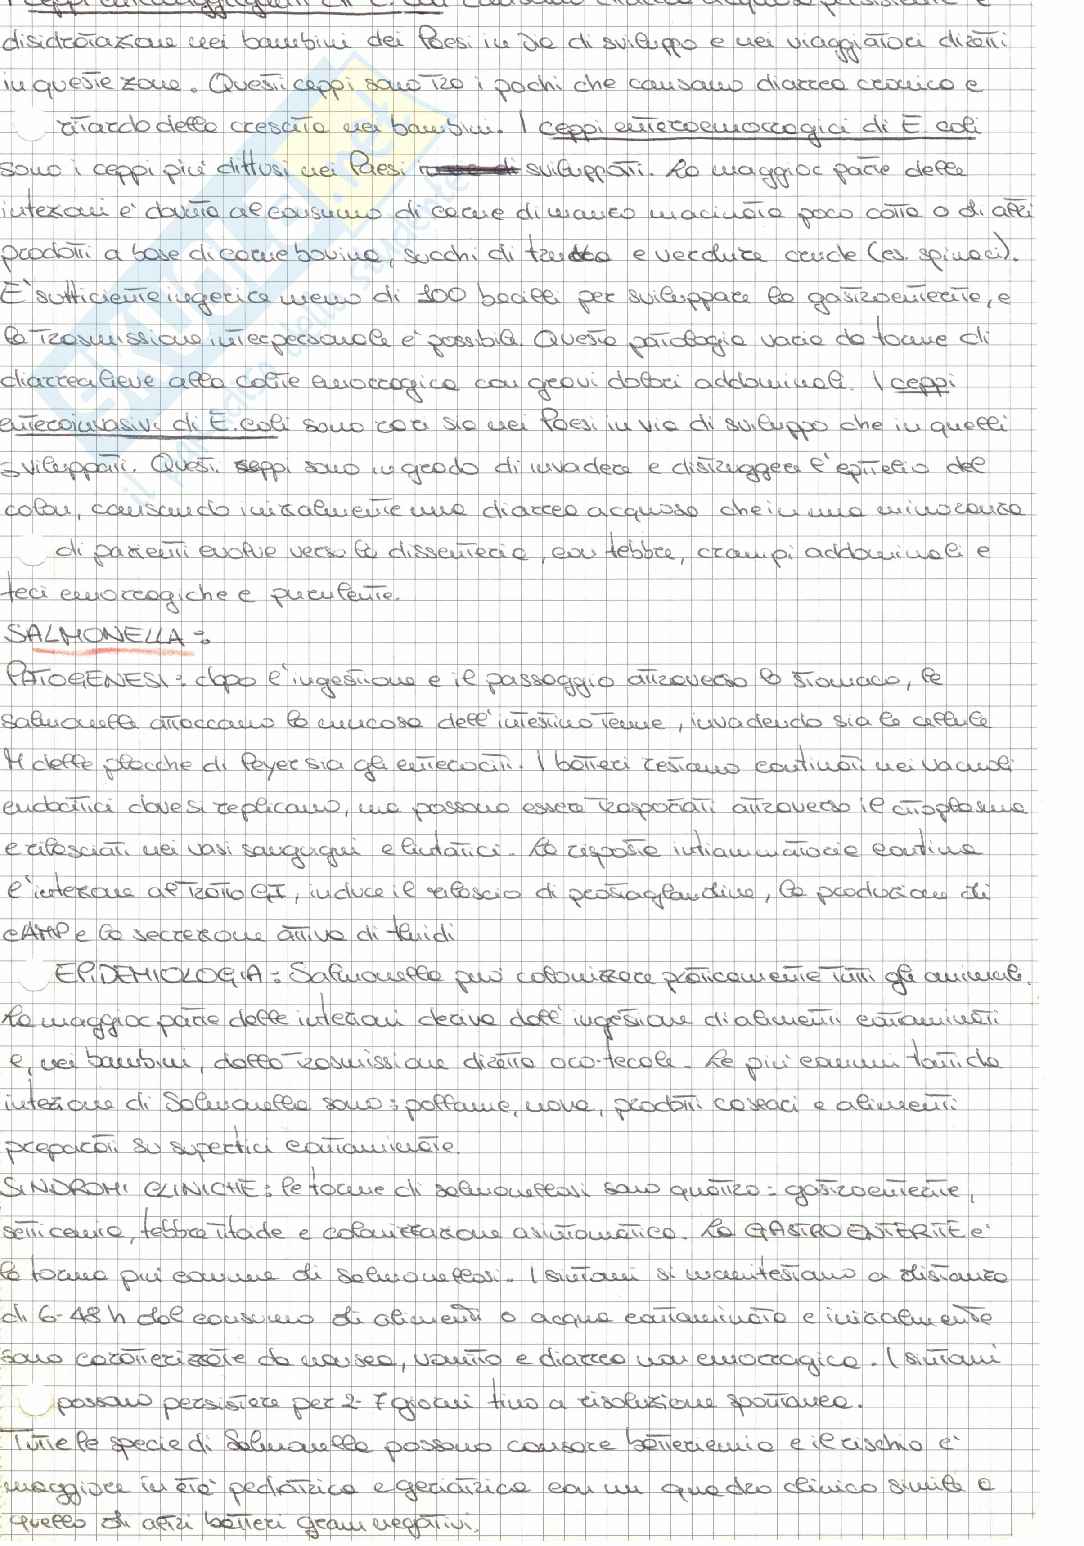 I ceppi enteroaggreganti di E. coli causano diarrea acquosa persistente e
disidratazione nei bambini dei Paesi in via di sviluppo e nei viaggiatori diretti
in queste zone. Questi ceppi sono tra i pochi che causano diarrea cronica e
ritardo della crescita nei bambini. I ceppi enteroemorragici di E. coli
sono i ceppi più diffusi nei Paesi sviluppati. La maggior parte delle
infezioni è dovuta al consumo di carne di manzo macinata poco cotta o di altri
prodotti a base di carne bovina, succhi di frutta e verdura crude (es. spinaci).
E' sufficiente ingerire meno di 100 bacilli per sviluppare la gastroenterite, e
la trasmissione interpersonale è possibile. Questa patologia varia da forme di
diarrea lieve alla colite emorragica con gravi dolori addominali. I ceppi
enteroinvasivi di E. coli sono rari sia nei Paesi in via di sviluppo che in quelli
sviluppati. Questi ceppi sono in grado di invadere e distruggere l'epitelio del
colon, causando inizialmente una diarrea acquosa che in una minoranza
di pazienti evolve verso la dissenteria, con febbre, crampi addominali e
feci emorragiche e purulente.
SALMONELLA:
PATOGENESI: dopo l'ingestione e il passaggio attraverso lo stomaco, le
salmonelle attaccano la mucosa dell'intestino tenue, invadendo sia le cellule
M delle placche di Peyer sia gli enterociti. I batteri restano confinati nei vacuoli
endocitici dove si replicano, ma possono essere trasportati attraverso il citoplasma
e rilasciati nei vasi sanguigni e linfatici. La risposta infiammatoria confina
l'infezione al tratto GI, induce il rilascio di prostaglandine, la produzione di
cAMP e la secrezione attiva di fluidi
EPIDEMIOLOGIA: Salmonella può colonizzare praticamente tutti gli animali.
La maggior parte delle infezioni deriva dall'ingestione di alimenti contaminati
e, nei bambini, dalla trasmissione diretta oro-fecale. Le più comuni fonti da
infezione di Salmonella sono: pollame, uova, prodotti caseari e alimenti
preparati su superfici contaminate.
SINDROMI CLINICHE: le forme di salmonellosi sono quattro: gastroenterite,
setticemia, febbre tifoide e colonizzazione asintomatica. La GASTROENTERITE è
la forma più comune di salmonellosi. I sintomi si manifestano a distanza
di 6-48 h dal consumo di alimenti o acqua contaminata e inizialmente
sono caratterizzate da nausea, vomito e diarrea non emorragica. I sintomi
possono persistere per 2-7 giorni fino a risoluzione spontanea.
Tutte le specie di Salmonella possono causare batteriemia e il rischio è
maggiore in età pediatrica e geriatrica con un quadro clinico simile a
quello di altri batteri gram negativi.